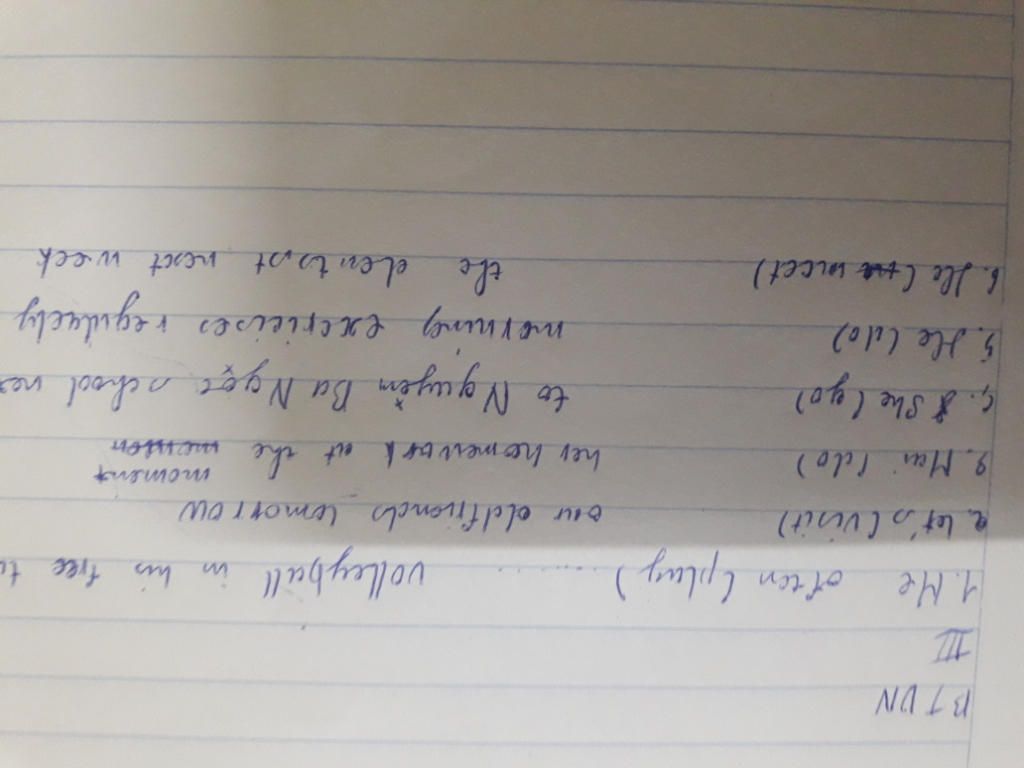 BTVN
III
1. He often (play) ........ volleyball in his free
2. let's (visit) our oldfriends tomorrow
moment
3. Mai (do) her homework at the
4. She (go) to Nguyễn Bá Ngọc school
5. He (do) morning exericises regulaely
6. He (meet) the dentist next week